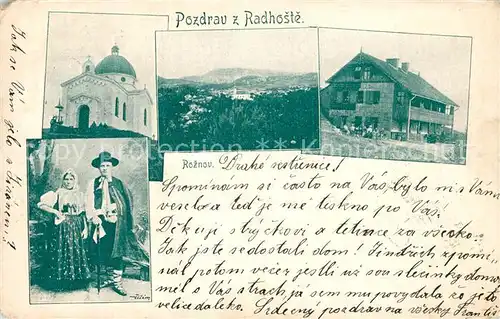 Pozdrav z Radhoště.
Jak se Vám jelo
Rožnov.
Drahé sestřenice!
Spomínám si často na Vás, bylo mi s Vámi
veselo a teď je mě teskno po Vás!
Děkuji strýčkovi a tetince za všecko
Jak jste se dostali domů! Jindřich
potom večer jestli už sou slečinky doma,
měl o Vás strach, já sem mu povydala že jeli
velice daleko. Srdečný pozdrav na všecky